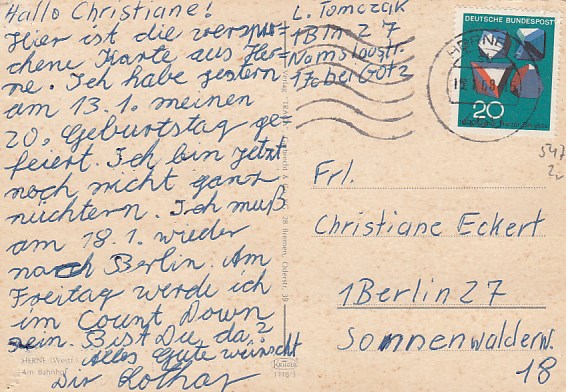 Hallo Christiane!
Hier ist die verspro=
chene Karte aus Her=
ne. Ich habe gestern
am 13.1. meinen
20. Geburtstag ge=
feiert. Ich bin jetzt
noch nicht ganz
nüchtern. Ich muß
am 18.1. wieder
nach Berlin. Am
Freitag werde ich
im Count Down
sein. Bist Du da?
Alles Gute wünscht
Dir Lothar
HERNE (Westf.)
Am Bahnhof
L. Tomczak
1 Bln 27
bei Götz
Verlag
28 Bremen
KRÜGER
DEUTSCHE BUNDESPOST
20
HERNE
547
Frl.
Christiane Eckert
1 Berlin 27
Sonnenwalderw.
18